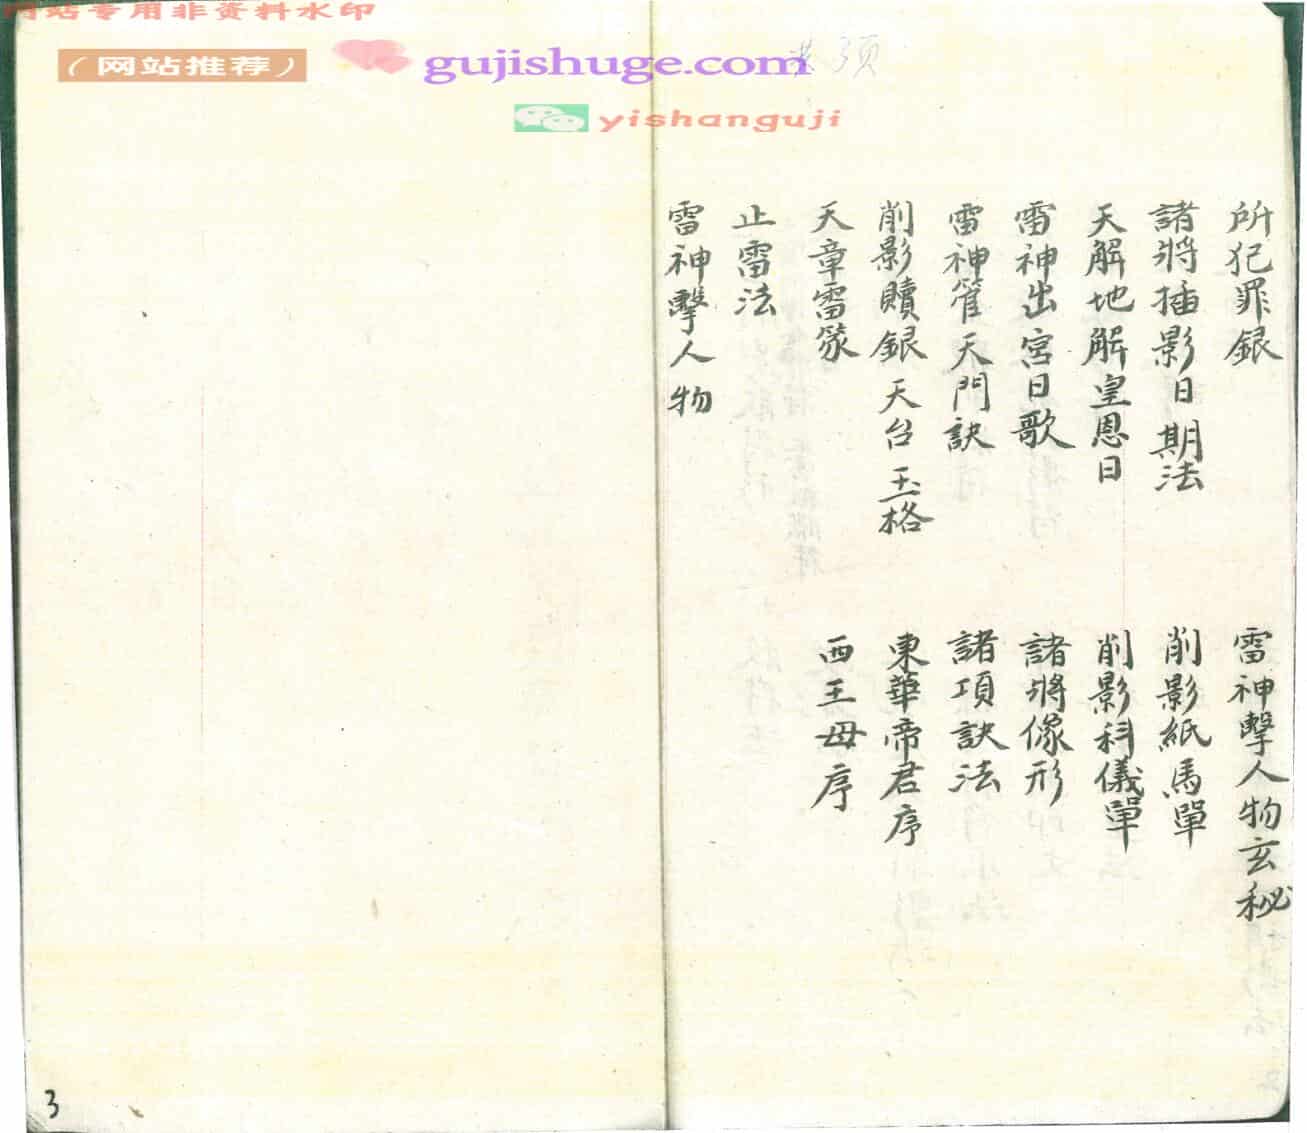 网站专用非资料水印
（网站推荐）
gujishuge.com
yishanguji
共 3页
所犯罪銀
諸將插影日期法
天解地解皇恩日
雷神出宮日歌
雷神管天門訣
削影贖銀 天台玉格
天章雷篆
止雷法
雷神擊人物
雷神擊人物玄秘
削影紙馬單
削影科儀單
諸將像形
諸項訣法
東華帝君序
西王母序
3